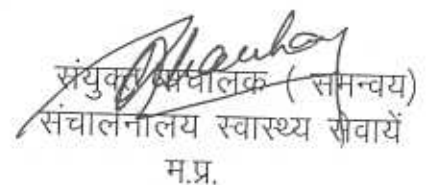 संयुक्त संचालक ( समन्वय)
संचालनालय स्वास्थ्य सेवायें
म.प्र.